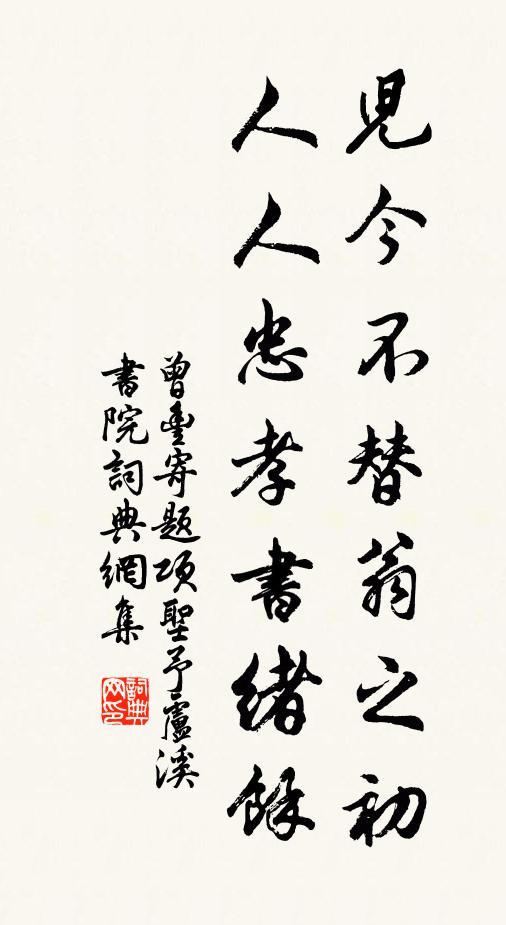 兒今不替翁之初
人人忠孝書緒餘
曾豐寄題項聖予盧溪
書院詞典網集
詞典网印